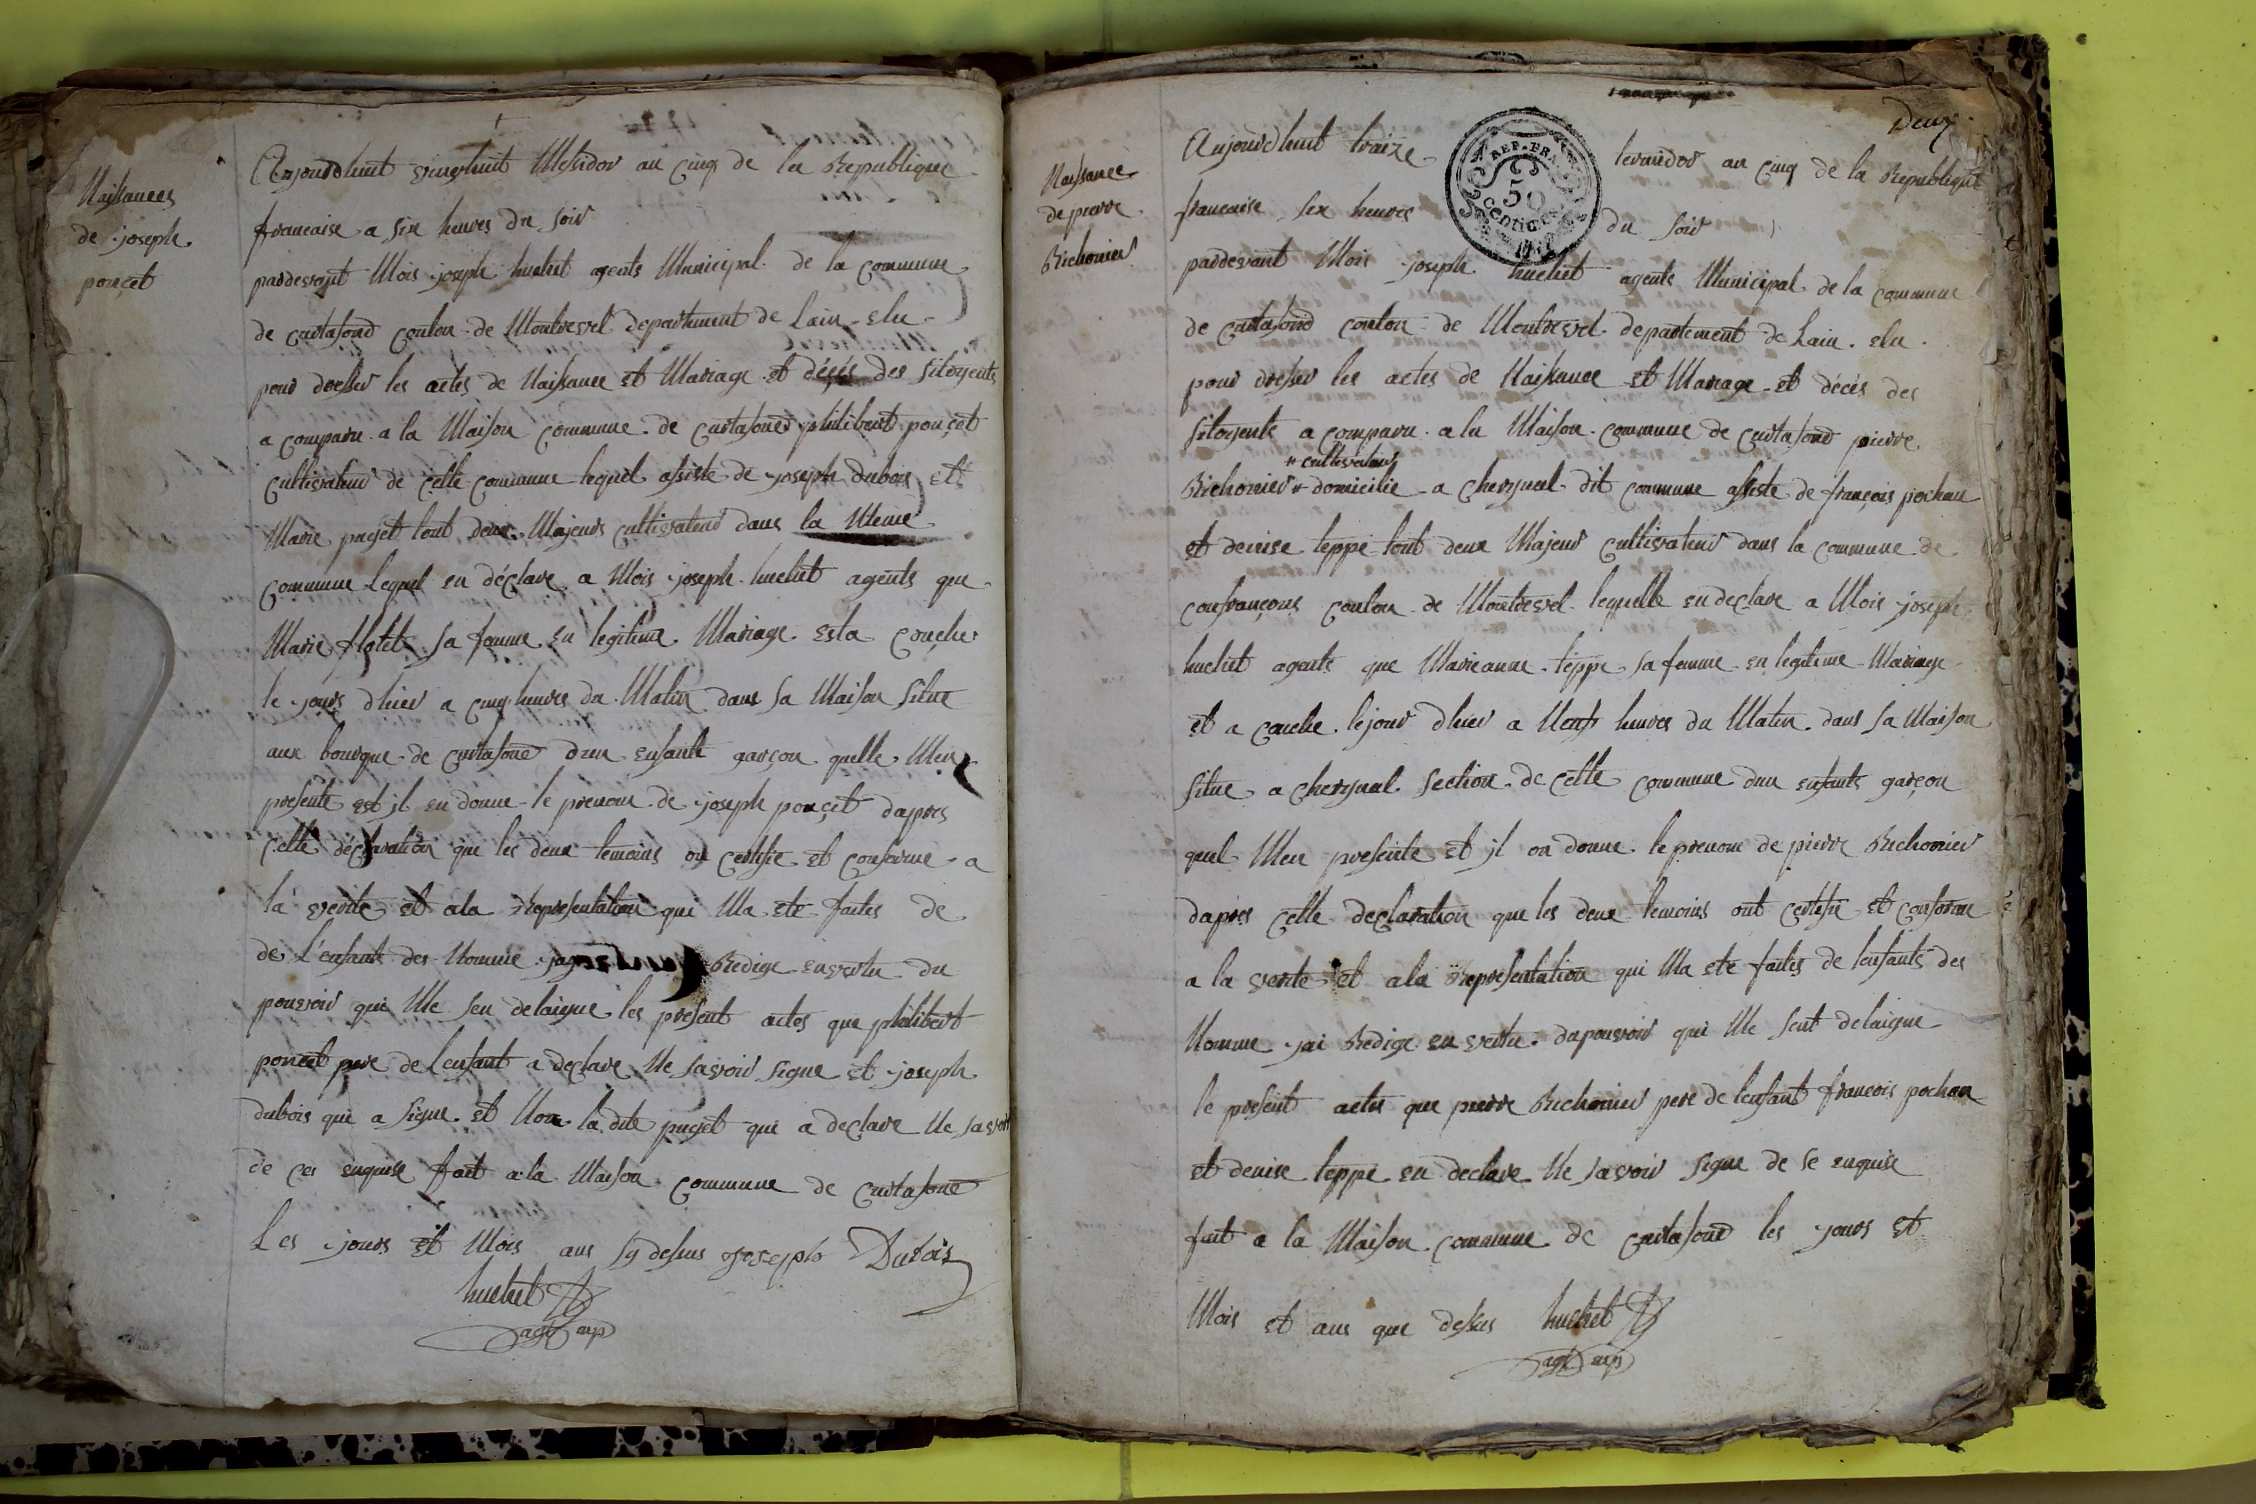 Naissances
de joseph
ponçet
Aujourdhuit vingthuit Messidor an Cinq de la Republique
francaise a six heures du soir
pardevant Mois joseph huchet agents Municipal de la Commune
de curtafond canton de Montrevel departement de Lain elu
pour dresser les actes de Naissance et Mariage et déçés des sitoyents
a comparu a la Maison Commune de curtafond philibert ponçet
Cultivateur de Cette Commune lequel assiste de joseph dubois et
Marie puget tout deux Majeurs Cultivateur dans la Meme
Commune Lequel en déclare a Mois joseph huchet agents que
Marie flotet sa femme en legitime Mariage esta Couche
le jours dhier a cinq heures du Matin dans sa Maison situe
aux bourque de curtafond dun enfants garçon quelle Men
presente est jl en donne le prenom de joseph ponçet dapres
Cette déclaration que les deux temoins on certifie et conforme a
la verite et ala Representation qui Ma ete faites de
de L'enfants des Nomme Redige envertu du
pouvoir qui Me sen delaigue les present actes que philibert
poncet pere de Lenfant a declare Ne savoir signe et joseph
dubois qui a signe et Non la dite puget qui a declare Ne savoir
de ces enquise fait a la Maison Commune de curtafond
Les jours et Mois ans sy dessus joseph Dubois
huchet
agt mp
Deux
Naissance
de pierre
Richonier
Aujourdhuit traize tervidor an cinq de la Republique
REP. FRA.
50
centimes
francaise six heures du soir
pardevant Mois joseph huchet agents Municipal de la Commune
de curtafond canton de Montrevel departement de Lain elu
pour dresser les actes de Naissance et Mariage et décés des
sitoyents a comparu a la Maison commune de curtafond pierre
" cultivateur
Richonier " domicilie a cheveynal dit commune assiste de françois pochon
et denise teppe tout deux Majeur Cultivateur dans la commune de
confrançons canton de Montrevel lequelle en declare a Mois joseph
huchet agents que Marieanne teppe sa femme en legitime Mariage
et a couche lejour dhier a Neufs heures du Matin dans sa Maison
situe a section de cette commune dun enfants garçon
quel Men presente et jl on donne le prenom de pierre Richonier
dapres cette declaration que les deux temoins ont certifie et conforme
a la verite et ala Representation qui Ma ete faites de lenfants des
Nomme jai Redige en vertu dupouvoir qui Me sent delaigue
le present actes que pierre Richonier pere de lenfant francois pochon
et denise teppe en declare Ne savoir signe de se enquise
fait a la Maison commune de curtafond les jours et
Mois et ans que dessus huchet
agt mp